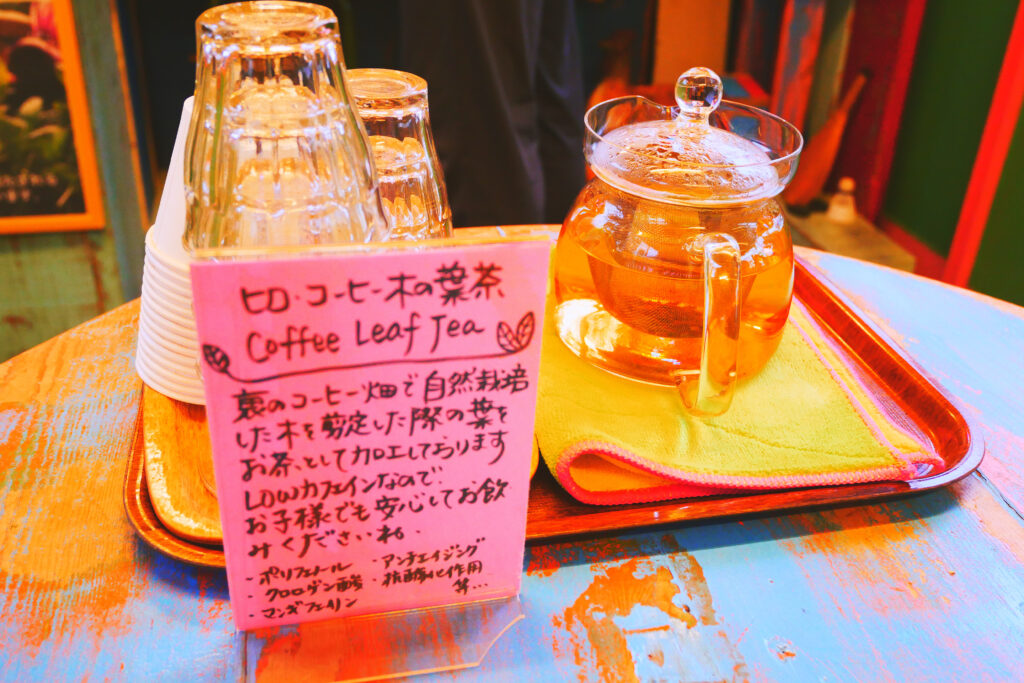 ヒロ・コーヒー木の葉茶
Coffee Leaf Tea
裏のコーヒー畑で自然栽培
した木を剪定した際の葉を
お茶としてカロエしております
LOWカフェインなので、
お子様でも安心してお飲
みくださいね、
・ポリフェノール ・アンチエイジング
・クロロゲン酸 ・抗酸化作用
・マンギフェリン 等…